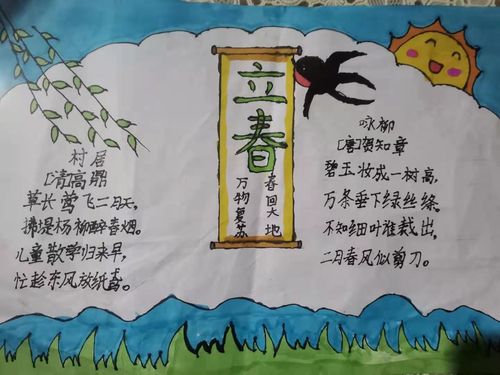 立春
春回大地
万物复苏
村居
[清]高鼎
草长莺飞二月天，
拂堤杨柳醉春烟。
儿童散学归来早，
忙趁东风放纸鸢。
咏柳
[唐]贺知章
碧玉妆成一树高，
万条垂下绿丝绦。
不知细叶谁裁出，
二月春风似剪刀。